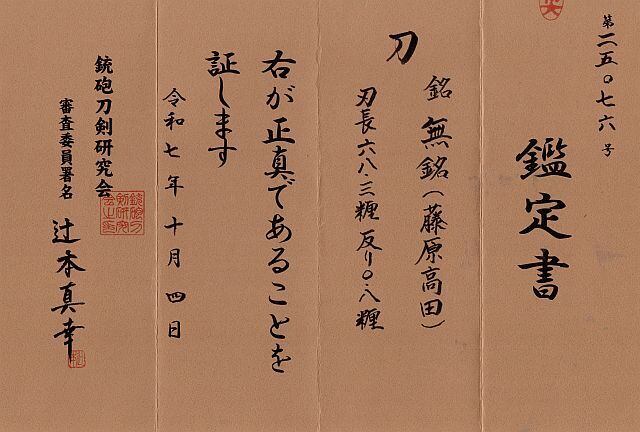 第二五〇七六号
鑑定書
刀
銘 無銘(藤原高田)
刃長 六八・三糎 反り〇・八糎
右が正真であることを
証します
令和七年十月四日
銃砲刀剣研究会
審査委員署名 辻本真幸